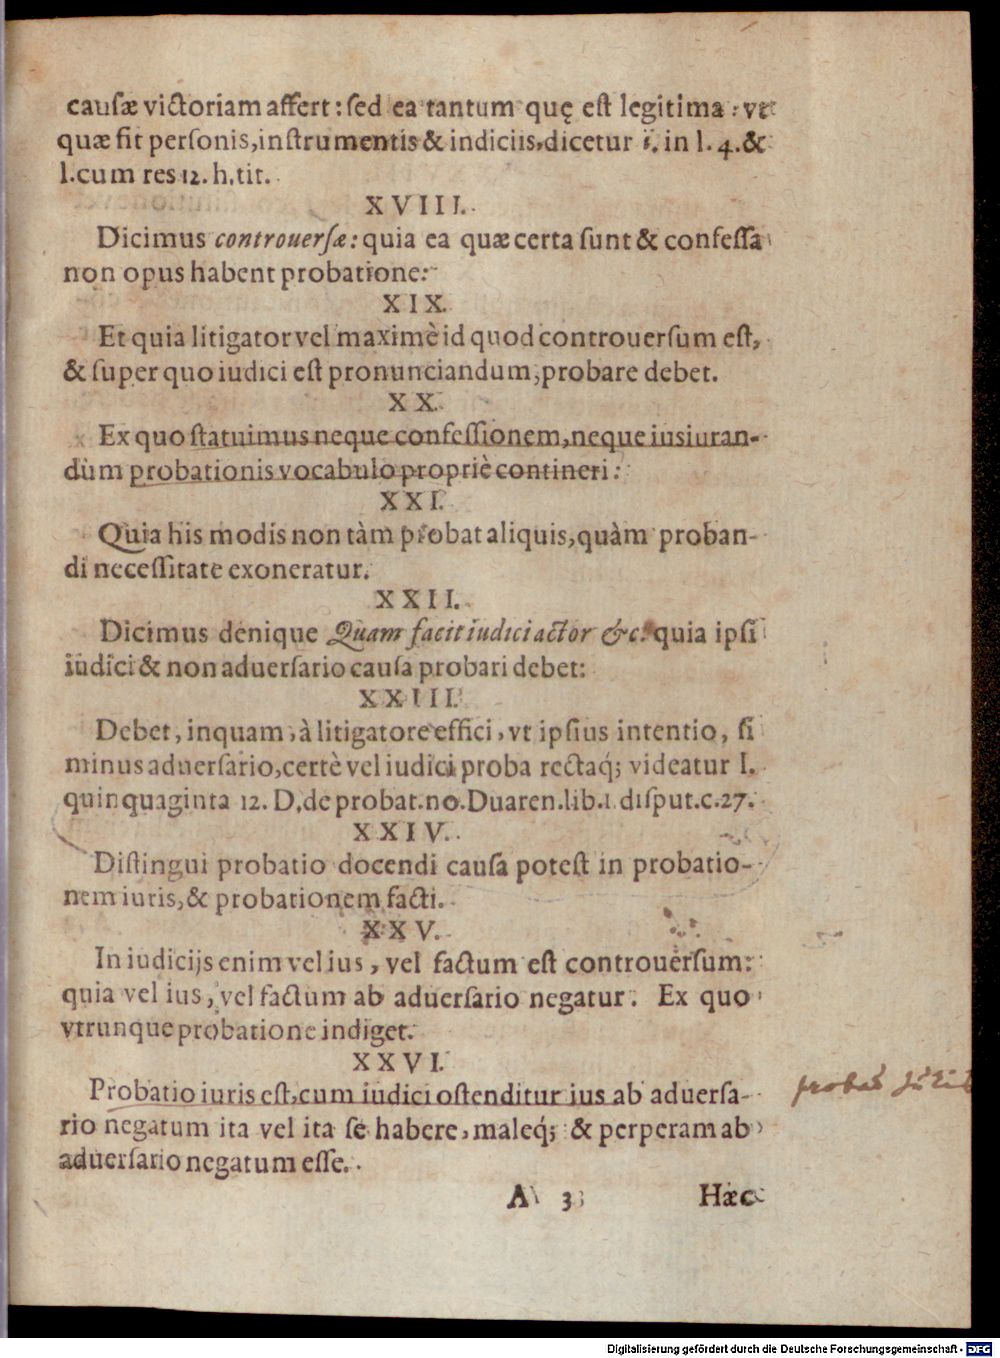 cauſæ victoriam affert: ſed ea tantum quę eſt legitima: vt
quæ fit perſonis, inſtrumentis & indiciis, dicetur i. in l. 4. &
l. cum res 12. h. tit.
XVIII.
Dicimus controuerſæ: quia ea quæ certa ſunt & confeſſa
non opus habent probatione:
XIX.
Et quia litigator vel maximè id quod controuerſum eſt,
& ſuper quo iudici eſt pronunciandum, probare debet.
XX.
Ex quo ſtatuimus neque confeſſionem, neque iusiuran-
dùm probationis vocabulo propriè contineri:
XXI.
Quia his modis non tàm probat aliquis, quàm proban-
di neceſſitate exoneratur.
XXII.
Dicimus denique Quam facit iudici actor &c. quia ipſi
iudici & non aduerſario cauſa probari debet:
XXIII.
Debet, inquam, à litigatore effici, vt ipſius intentio, ſi
minus aduerſario, certè vel iudici proba rectaq́; videatur l.
quinquaginta 12. D. de probat. no. Duaren. lib. 1. diſput. c. 27.
XXIV.
Diſtingui probatio docendi cauſa poteſt in probatio-
nem iuris, & probationem facti.
XXV.
In iudicijs enim vel ius, vel factum eſt controuerſum:
quia vel ius, vel factum ab aduerſario negatur. Ex quo
vtrunque probatione indiget.
XXVI.
Probatio iuris eſt, cum iudici oſtenditur ius ab aduerſa-
rio negatum ita vel ita ſe habere, maleq́; & perperam ab
aduerſario negatum eſſe.
A 3 Hæc
Digitalisierung gefördert durch die Deutsche Forschungsgemeinschaft - DFG